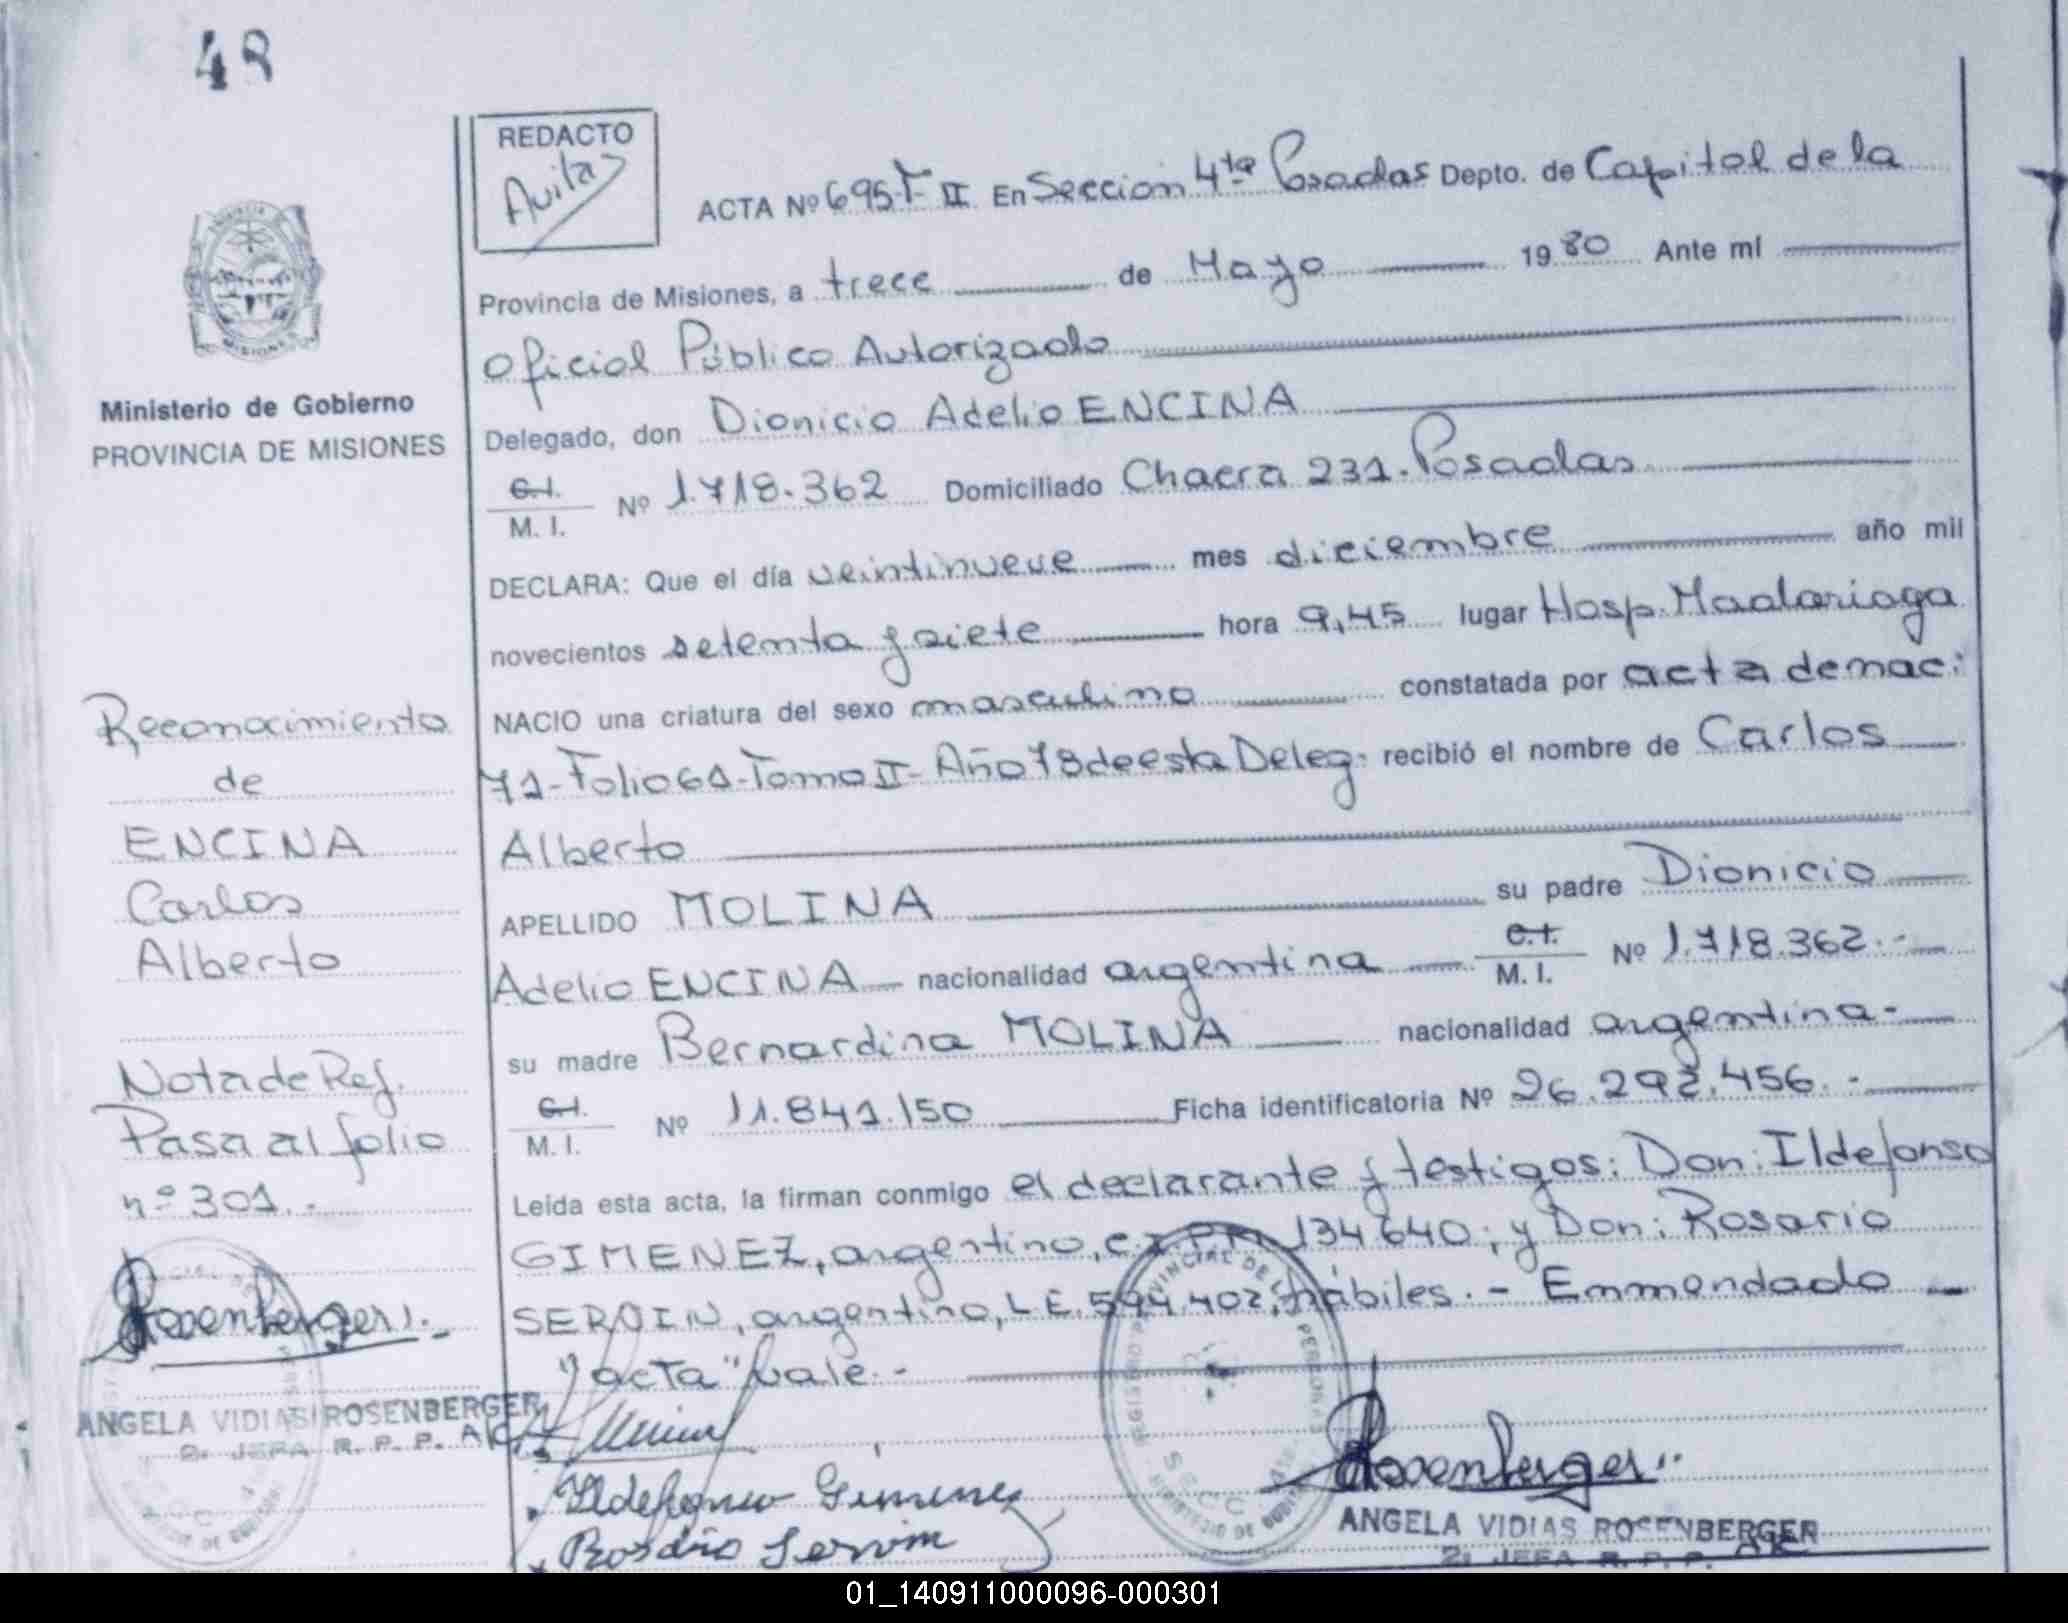 48
REDACTO
Avitas
ACTA Nº 695 T- II En Seccion 4ta Posadas Depto. de Capital de la
Provincia de Misiones, a trece de Mayo 1980 Ante mí
Oficial Público Autorizado
Delegado, don Dionicio Adelio ENCINA
C.I. M. I. Nº 1.718.362 Domiciliado Chacra 231. Posadas
DECLARA: Que el día veintinueve mes diciembre año mil
novecientos setenta y siete hora 9,45 lugar Hosp. Madariaga
NACIO una criatura del sexo masculino constatada por acta de nac.
71-Folio 61-Tomo II- Año 78 de esta Deleg. recibió el nombre de Carlos
Alberto
APELLIDO MOLINA su padre Dionicio
Adelio ENCINA nacionalidad argentina C.I. M. I. Nº 1.718.362.-
su madre Bernardina MOLINA nacionalidad argentina-
C.I. M. I. Nº 11.841.150 Ficha identificatoria Nº 26.292.456.-
Leída esta acta, la firman conmigo el declarante y testigos: Don: Ildefonso
GIMENEZ, argentino, C.I. PM 134640; y Don: Rosario
SERVIN, argentino, L.E. 594.402, hábiles.- Emmendado
"acta" vale.-
Ildefonso Gimenez
Rosario Servin
Rosenberger
ANGELA VIDIAS ROSENBERGER
2. JEFA R. P. P.
REGISTRO PROVINCIAL DE LAS PERSONAS
MINISTERIO DE GOBIERNO
PROVINCIA
MISIONES
Ministerio de Gobierno
PROVINCIA DE MISIONES
Reconocimiento
de
ENCINA
Carlos
Alberto
Nota de Ref.
Pasa al folio
nº 301.-
Rosenberger
ANGELA VIDIAS ROSENBERGER
2. JEFA R. P. P.
01_140911000096-000301